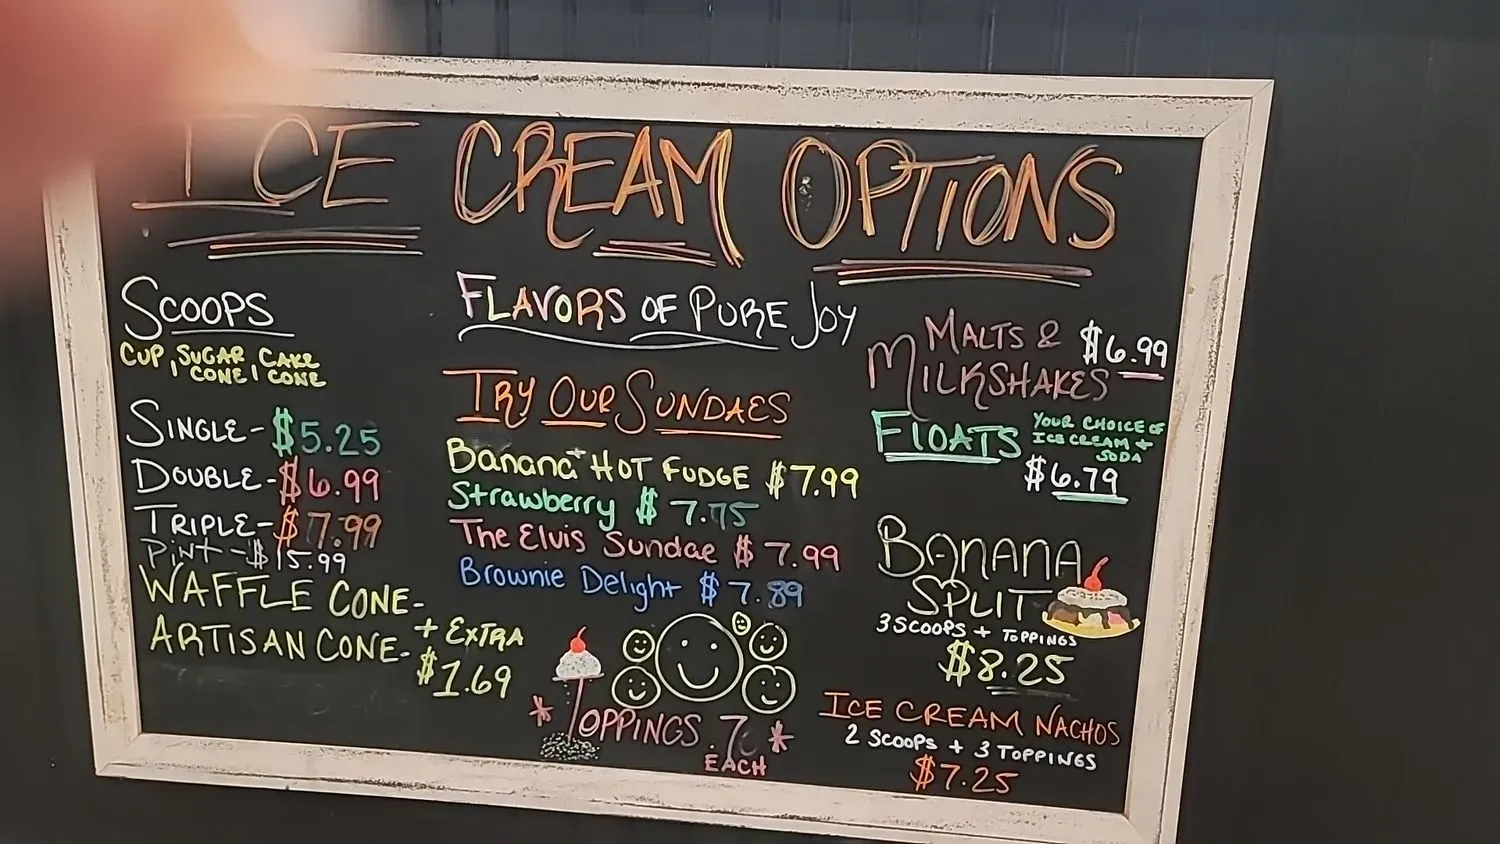 ICE CREAM OPTIONS
SCOOPS
CUP, SUGAR CONE, CAKE CONE
SINGLE - $5.25
DOUBLE - $6.99
TRIPLE - $7.99
Pint - $15.99
WAFFLE CONE -
ARTISAN CONE -
+ EXTRA
$1.69
FLAVORS OF PURE JOY
TRY OUR SUNDAES
Banana + HOT FUDGE $7.99
Strawberry $7.75
The Elvis Sundae $7.99
Brownie Delight $7.89
* TOPPINGS *
EACH
MALTS &
MILKSHAKES
$6.99
FLOATS
YOUR CHOICE OF
ICE CREAM +
SODA
$6.79
BANANA
SPLIT
3 SCOOPS + TOPPINGS
$8.25
ICE CREAM NACHOS
2 SCOOPS + 3 TOPPINGS
$7.25